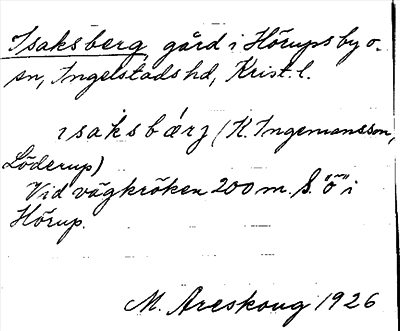 Isaksberg gård i Hörups by o.
sn, Ingelstads hd, Krist. l.
ɪsaksbærj (H. Ingemansson,
Löderup)
Vid vägkröken 200 m. S. "ö" i
Hörup.
M. Areskoug 1926